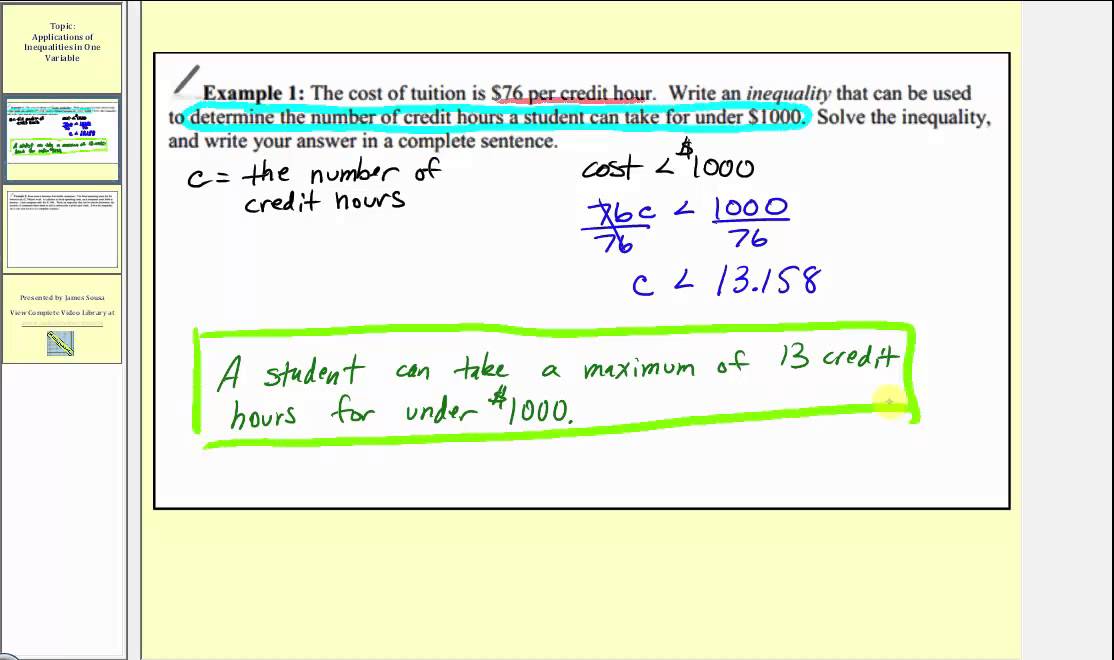 Topic:
Applications of
Inequalities in One
Variable
Presented by James Sousa
View Complete Video Library at
Example 1: The cost of tuition is $76 per credit hour. Write an inequality that can be used
to determine the number of credit hours a student can take for under $1000. Solve the inequality,
and write your answer in a complete sentence.
c = the number of
credit hours
cost < $1000
76c < 1000
76 76
c < 13.158
A student can take a maximum of 13 credit
hours for under $1000.